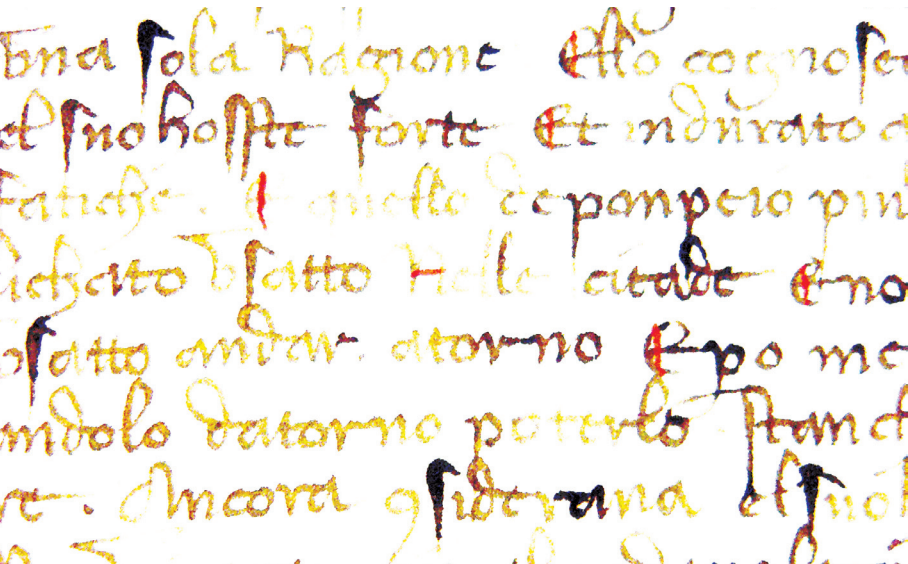 una sola Ragione Esso cognosce
el suo hosste forte Et indurato a
fatiche. Et quello de ponpeio piu
usatto Nelle citade E no
usatto andar atorno E po me
andolo datorno poterlo stanch
Ancora ꝯsiderana el suo